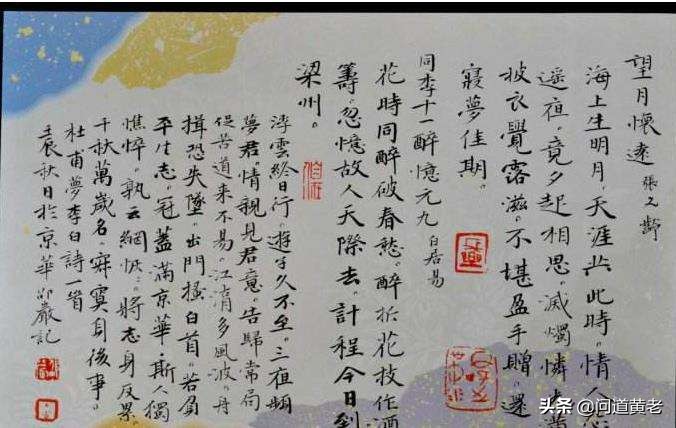 望月懷遠 張九齡
海上生明月。天涯共此時。情人怨
遥夜。竟夕起相思。滅燭憐光滿
披衣覺露滋。不堪盈手贈。還
寢夢佳期。
同李十一醉憶元九 白居易
花時同醉破春愁。醉折花枝作酒
籌。忽憶故人天際去。計程今日到
梁州。
浮雲終日行。遊子久不至。三夜頻
夢君。情親見君意。告歸常局
促苦道来不易。江湖多風波。舟
楫恐失墜。出門搔白首。若負
平生志。冠蓋滿京華。斯人獨
憔悴。孰云網恢。將老身反累。
千秋萬歲名。寂寞身後事。
杜甫夢李白詩一首
壬辰秋日於京華 巖記
头条 @问道黄老